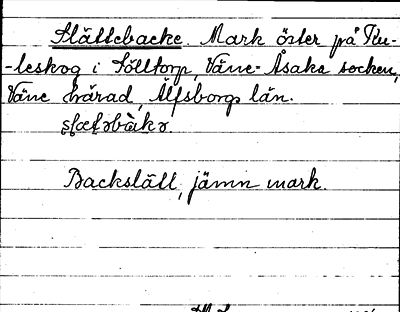 Slättebacke. Mark öster på Ku-
-leskog i Sölltorp, Väne-Åsaka socken,
Väne härad, Älfsborgs län.
Backslätt, jämn mark.